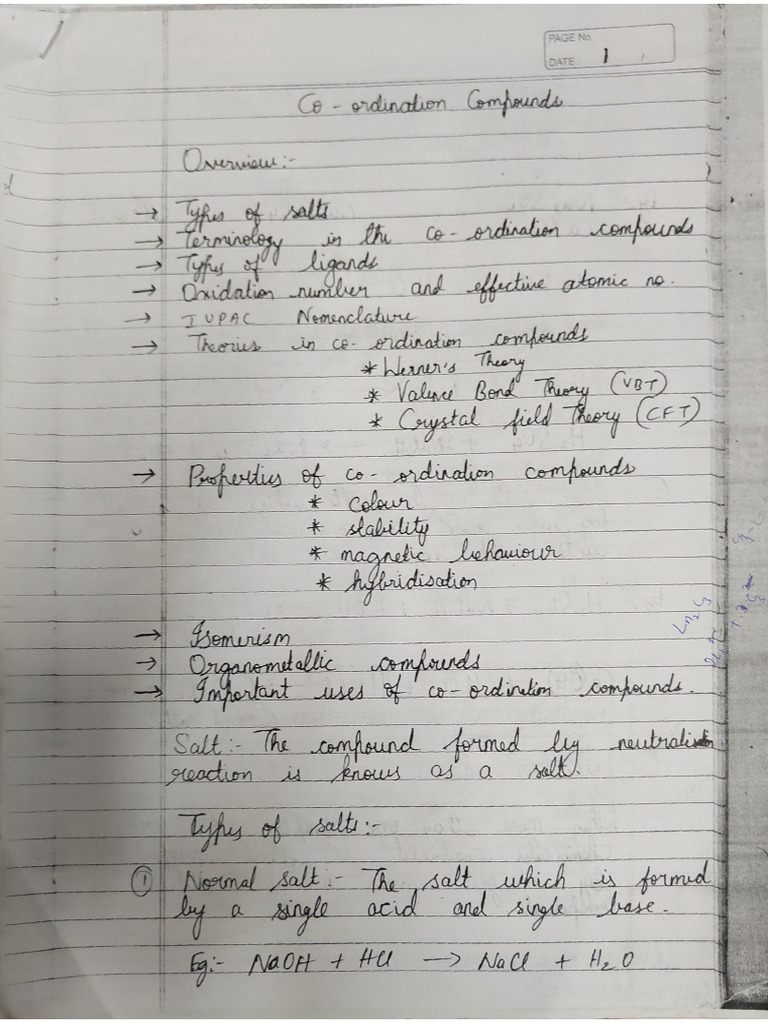 PAGE No.
DATE: 1
Co-ordination Compounds
Overview:-
→ Types of salts
→ Terminology in the co-ordination compounds
→ Types of ligands
→ Oxidation number and effective atomic no.
→ IUPAC Nomenclature
→ Theories in co-ordination compounds
* Werner's Theory
* Valence Bond Theory (VBT)
* Crystal field Theory (CFT)
→ Properties of co-ordination compounds
* colour
* stability
* magnetic behaviour
* hybridisation
→ Isomerism
→ Organometallic compounds
→ Important uses of co-ordination compounds.
Salt:- The compound formed by
reaction is knows as a salt.
Types of salts:-
① Normal salt:- The salt which is formed
by a single acid and single base.
Eg:- NaOH + HCl → NaCl + H₂O